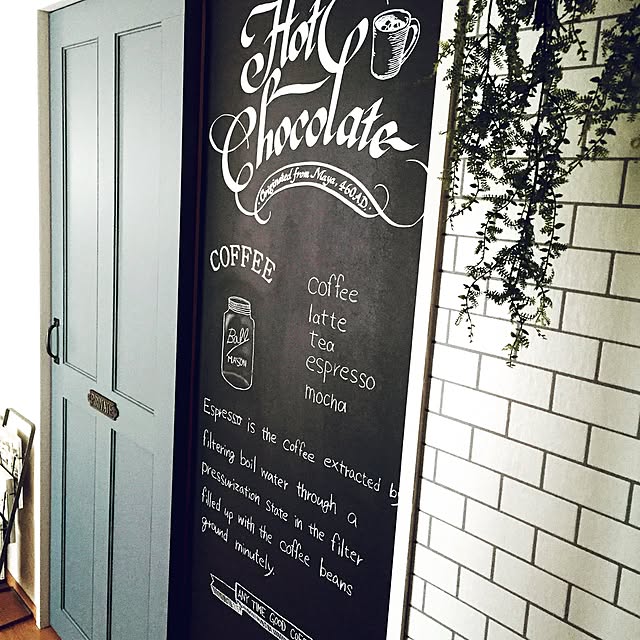 Hot
Chocolate
Originated from Maya, 460AD.
COFFEE
Ball
MASON
coffee
latte
tea
espresso
mocha
PRIVATE
Espresso is the coffee extracted by
filtering boil water through a
pressurization state in the filter
filled up with the coffee beans
ground minutely.
ANY TIME GOOD COFF